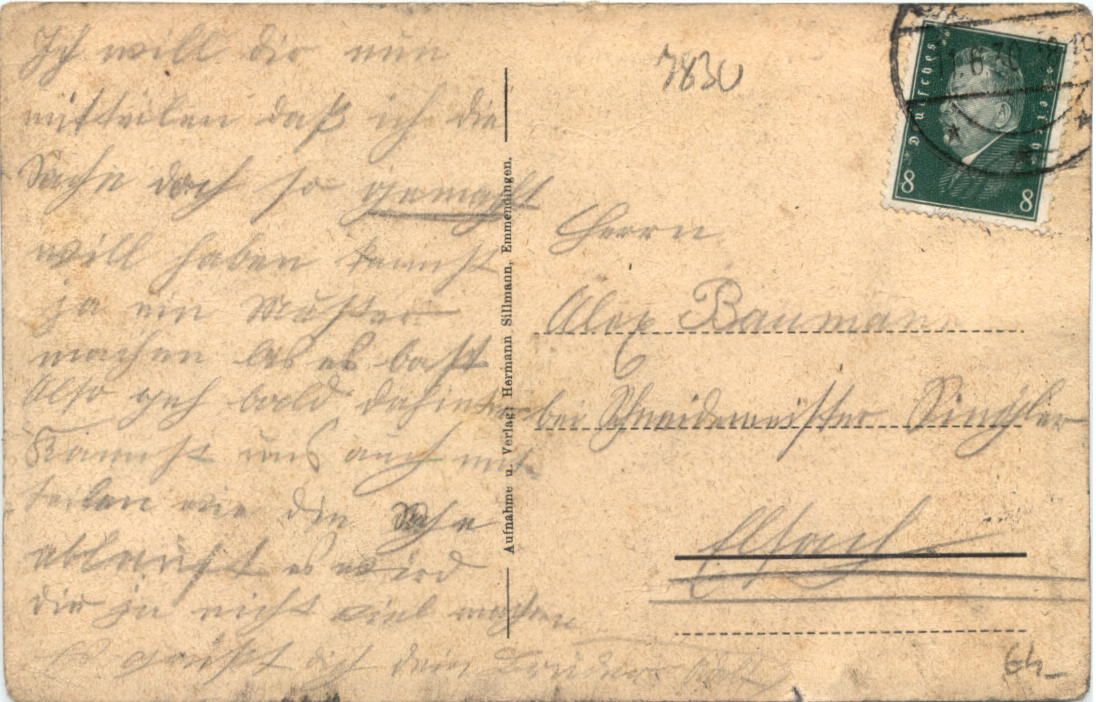 Ich will dir nun
mitteilen daß ich die
Sache doch so gemacht
will haben kannst
ja ein Muster
machen
Also geh bald dahinter
Kannst uns auch mit-
teilen wie die Sache
ablauft es wird
dir ja nicht viel machen
Es grüßt dich dein Bruder
Aufnahme u. Verlag: Hermann Sillmann, Emmendingen.
7830
Deutsches Reich
8 8
Herrn
Alex Baumann
bei Schneidemeister
Elzach